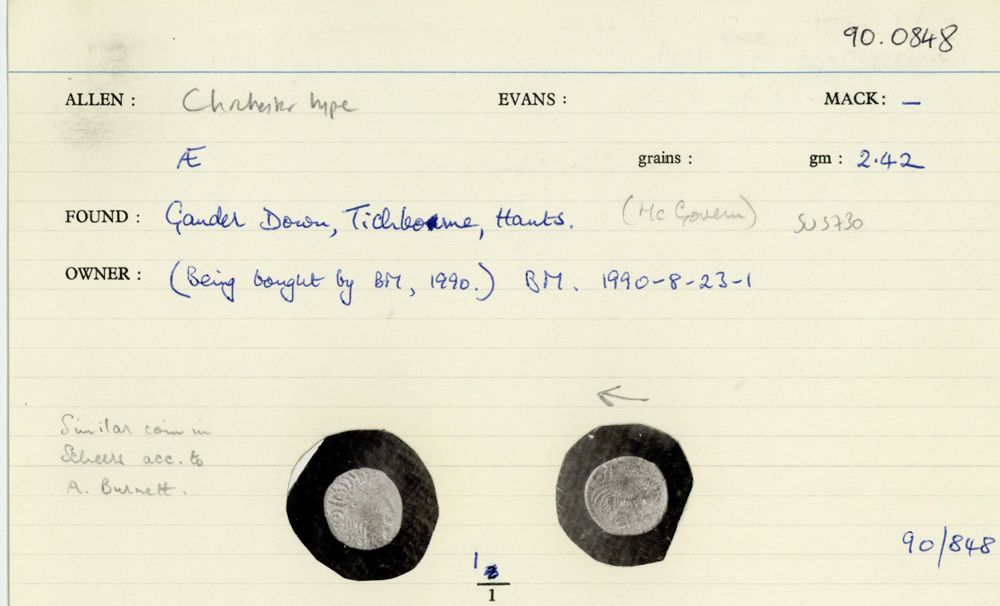 90.0848
ALLEN : Chichester type EVANS : MACK: —
Æ grains : gm : 2.42
FOUND : Gander Down, Tichborne, Hants. (McGovern) SUS730
OWNER : (Being bought by BM, 1990.) BM. 1990-8-23-1
←
Similar coin in
Scheers acc. to
A. Burnett.
90/848
1
1